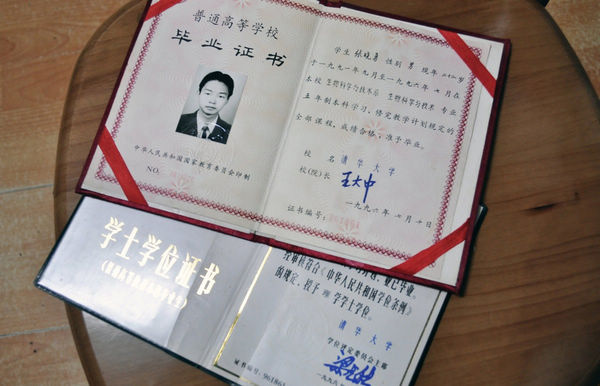 普通高等学校
毕业证书
中华人民共和国国家教育委员会印制
NO.
学生 张晓勇 性别 男 现年 二十二岁
于一九九一年九月至一九九六年七月在
本校 生物科学与技术系 生物科学与技术 专业
五年制本科学习，修完教学计划规定的
全部课程，成绩合格，准予毕业。
校 名 清华大学
校(院)长 王大中
一九九六年七月十日
证书编号：
学士学位证书
(普通高等教育本科毕业生)
经审核符合《中华人民共和国学位条例》
的规定，授予 理 学学士学位。
清华大学
学位评定委员会主席
证书编号：